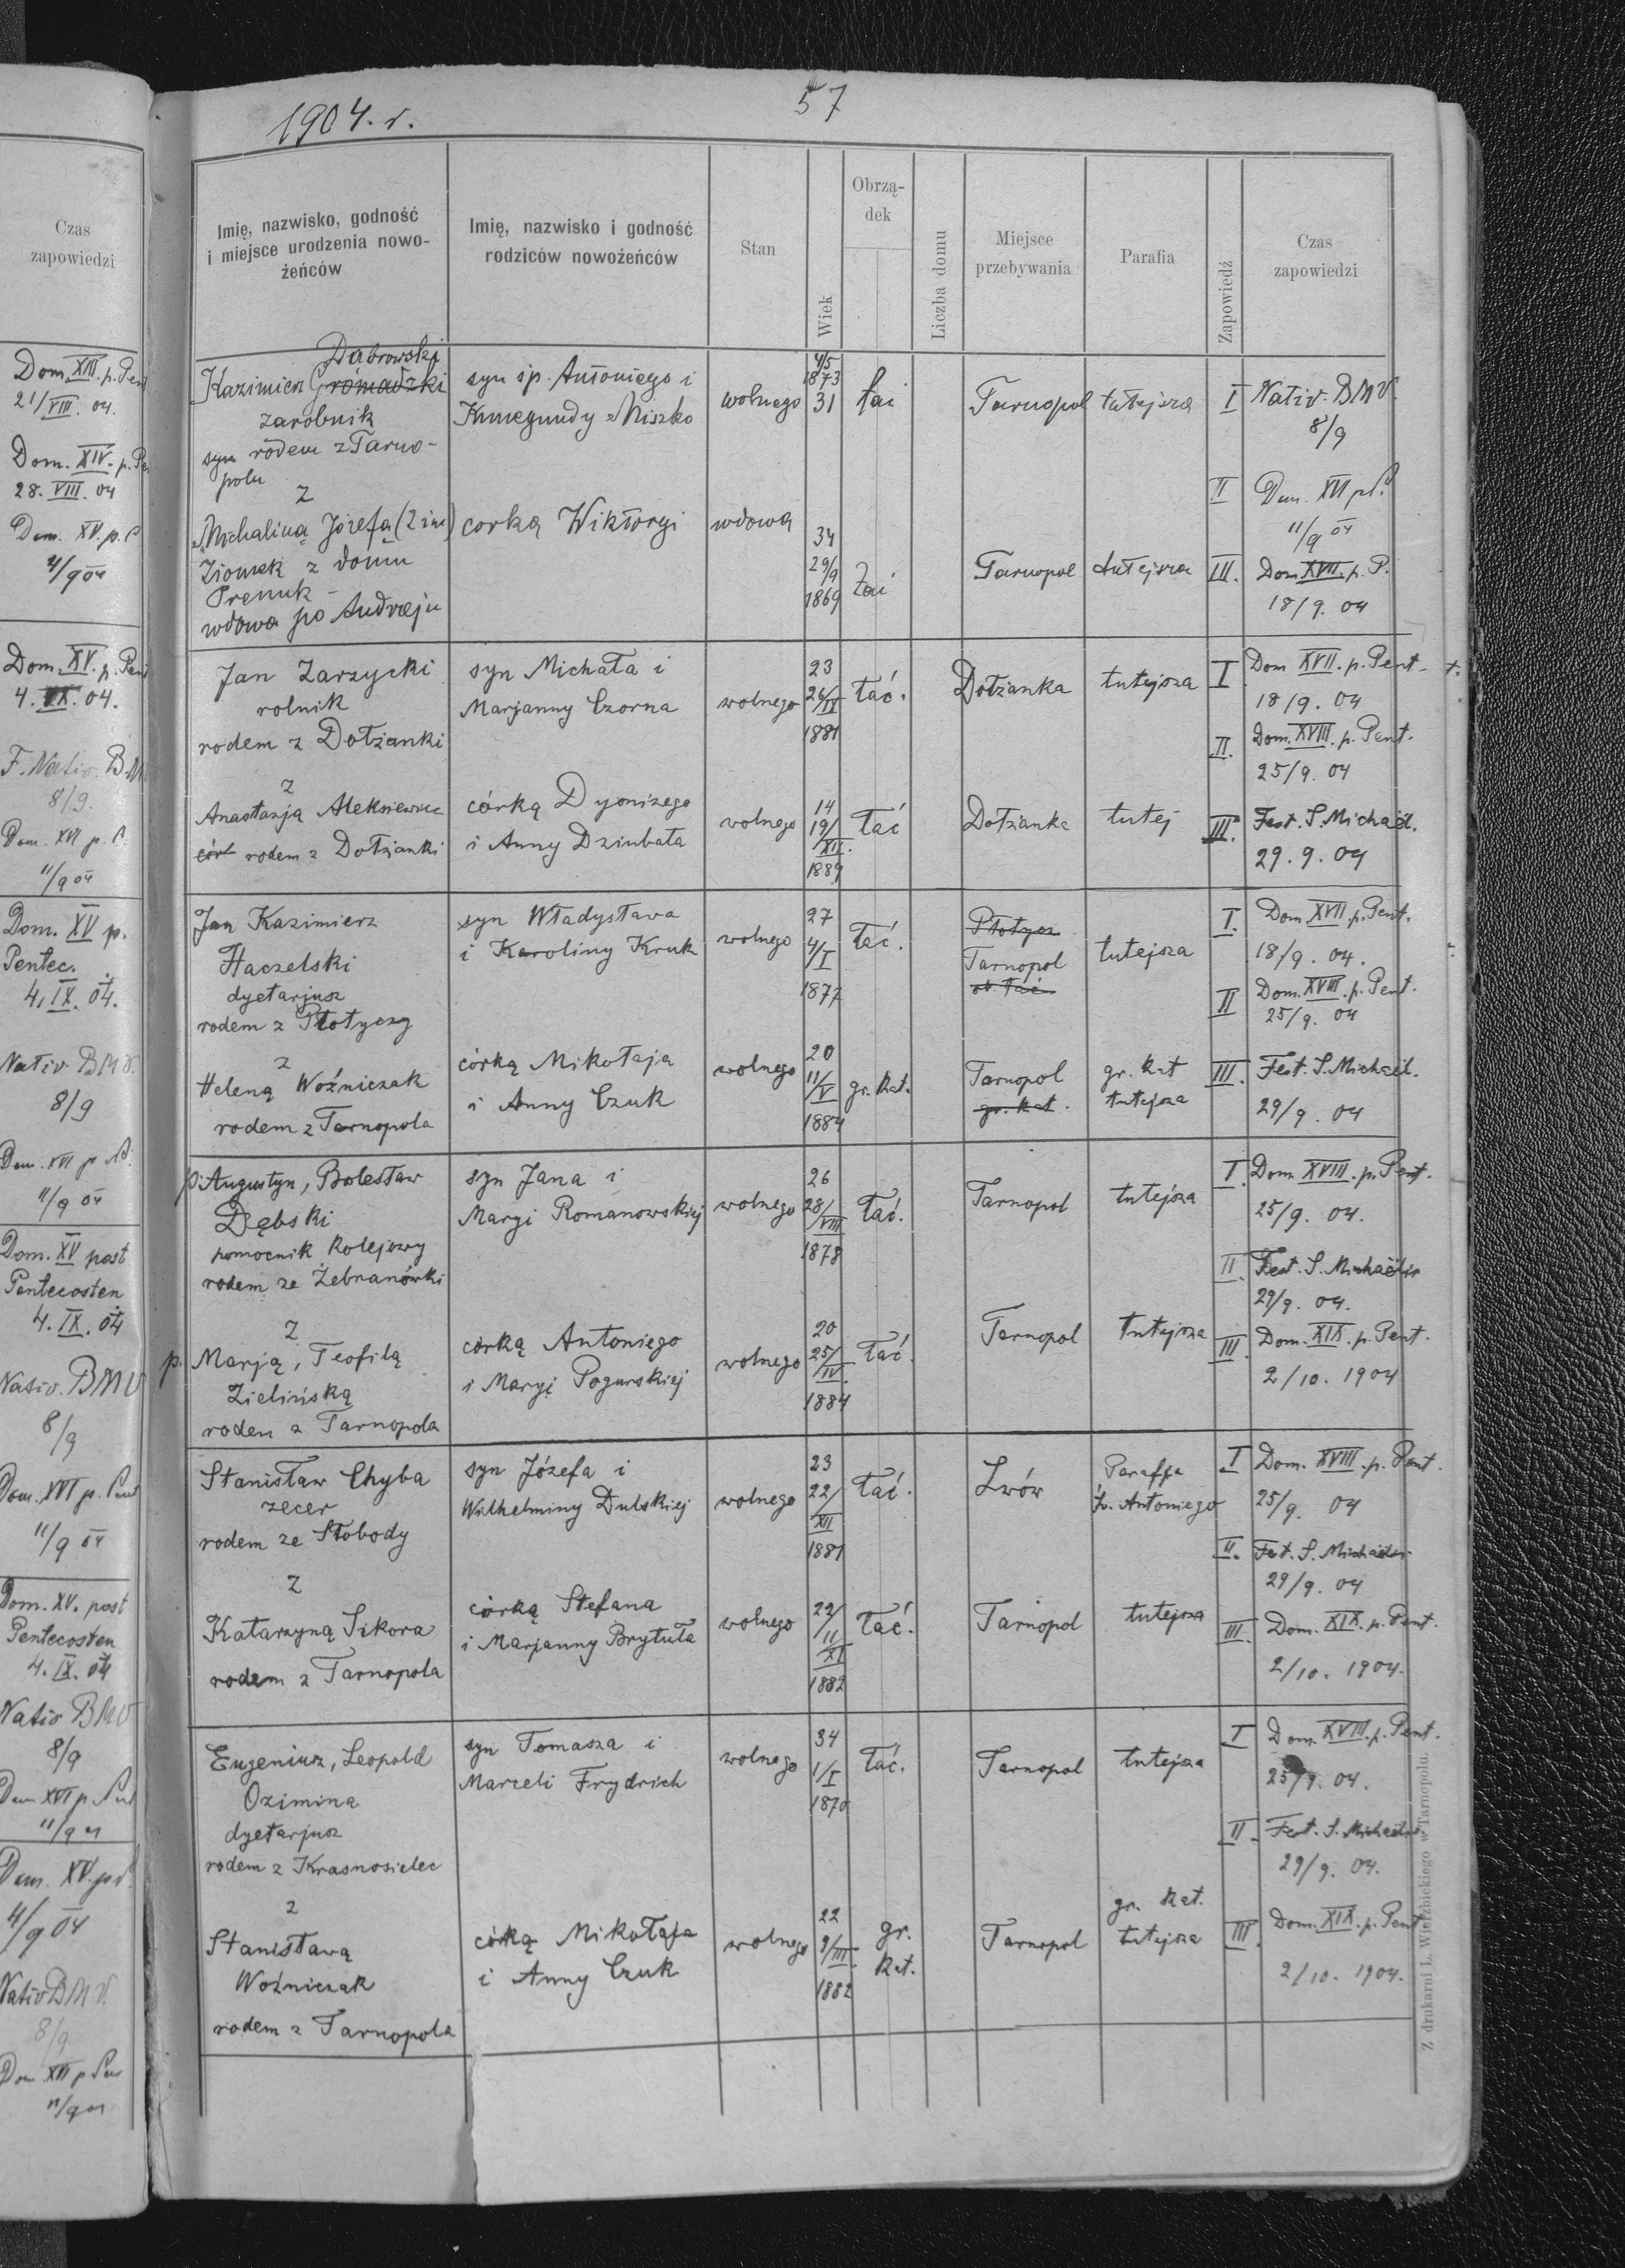 1904. r.
57
Czas
zapowiedzi
Dom. XIII. p. Pent
21/VIII. 04.
Dom. XIV. p. Pe
28. VIII. 04
Dom. XV. p. P
4/9 04
Dom. XV. p. Pent
4. IX. 04.
F. Nativ. B.M
8/9.
Dom. XVI p. P.
11/9 04
Dom. XV p.
Pentec.
4. IX. 04.
Nativ. BMV.
8/9
Dom. XVI p
11/9 04
Dom. XV post
Pentecosten
4. IX. 04
Nativ. BMV
8/9
Dom. XVI p. Pent
11/9 04
Dom. XV. post
Pentecosten
4. IX. 04
Nativ BMV
8/9
Dom XVI p Pent
11/9 04
Dom. XV. p
4/9 04
Nativ BMV.
8/9
Dom XVI p Pen
11/9 04
Imię, nazwisko, godność
i miejsce urodzenia nowo-
żeńców
Imię, nazwisko i godność
rodziców nowożeńców
Stan
Wiek
Obrzą-
dek
Liczba domu
Miejsce
przebywania
Parafia
Zapowiedź
Czas
zapowiedzi
Dąbrowski
Kazimierz Gromadzki
zarobnik
syn rodem z Tarno-
pola
syn śp. Antoniego i
Kunegundy Miszko
wolnego
4/5
1873
31
łac
Tarnopol
tutejsza
I Nativ. BMV.
8/9
II Dom. XVI p. P.
11/9 04
z
Michaliną Józefą (2 im)
Ziomek z domu
Prenuk -
wdowa po Andrzeju
corką Wiktoryi
wdowa
34
29/9
1869
łac
Tarnopol
tutejsza
III. Dom XVII. p. P.
18/9. 04
Jan Zarzycki
rolnik
rodem z Dołżanki
syn Michała i
Marjanny Czorna
wolnego
23
26/IX
1881
łac.
Dołżanka
tutejsza
I Dom XVII. p. Pent.
18/9. 04
II. Dom. XVIII. p. Pent.
25/9. 04
z
Anastazją Aleksiewicz
córk rodem z Dołżanki
córką Dyonizego
i Anny Dziubata
wolnego
14
19/XII.
1889
łac
Dołżanka
tutej
III. Fest. S. Michaël.
29. 9. 04
Jan Kazimierz
Haczelski
dyetarjusz
rodem z Płotyczy
syn Władysława
i Karoliny Kruk
wolnego
27
4/I
1877
łac.
Płotycz
Tarnopol
ob. łac
tutejsza
I. Dom. XVII. p. Pent.
18/9. 04.
II Dom. XVIII. p. Pent.
25/9. 04
z
Heleną Woźniczak
rodem z Tarnopola
córką Mikołaja
i Anny Czuk
wolnego
20
11/V
1884
gr. kat.
Tarnopol
gr. kat.
gr. kat
tutejsza
III. Fest. S. Michaël.
29/9. 04
p. Augustyn, Bolesław
Dębski
pomocnik kolejowy
rodem ze Żebranówki
syn Jana i
Maryi Romanowskiej
wolnego
26
28/VIII
1878
łac.
Tarnopol
tutejsza
I. Dom. XVIII. p. Pent.
25/9. 04.
II. Fest. S. Michaëlis
29/9. 04.
z
p. Marją, Teofilą
Zielińską
rodem z Tarnopola
córką Antoniego
i Maryi Pogurskiej
wolnego
20
25/IV.
1884
łac.
Tarnopol
tutejsza
III. Dom. XIX. p. Pent.
2/10. 1904
Stanisław Chyba
zecer
rodem ze Słobody
syn Józefa i
Wilhelminy Dulskiej
wolnego
23
22/XII
1881
łac.
Lwów
Paraffja
św. Antoniego
I Dom. XVIII. p. Pent.
25/9. 04
II. Fest. S. Michaëlis
29/9. 04
z
Katarzyną Sikora
rodem z Tarnopola
córką Stefana
i Marjanny Brytuła
wolnego
22/
11/XI
1882
łac.
Tarnopol
tutejsza
III. Dom. XIX. p. Pent.
2/10. 1904.
Eugeniusz, Leopold
Ozimina
dyetarjusz
rodem z Krasnosielec
syn Tomasza i
Marceli Frydrich
wolnego
34
1/I
1870
łac.
Tarnopol
tutejsza
I Dom. XVIII. p. Pent.
25/9. 04.
II. Fest. S. Michaëlis.
29/9. 04.
z
Stanisławą
Woźniczak
rodem z Tarnopola
córką Mikołaja
i Anny Czuk
wolnego
22
9/III.
1882
gr.
kat.
Tarnopol
gr. kat.
tutejsza
III. Dom. XIX. p. Pent
2/10. 1904.
Z drukarni L. Wierzbickiego w Tarnopolu.